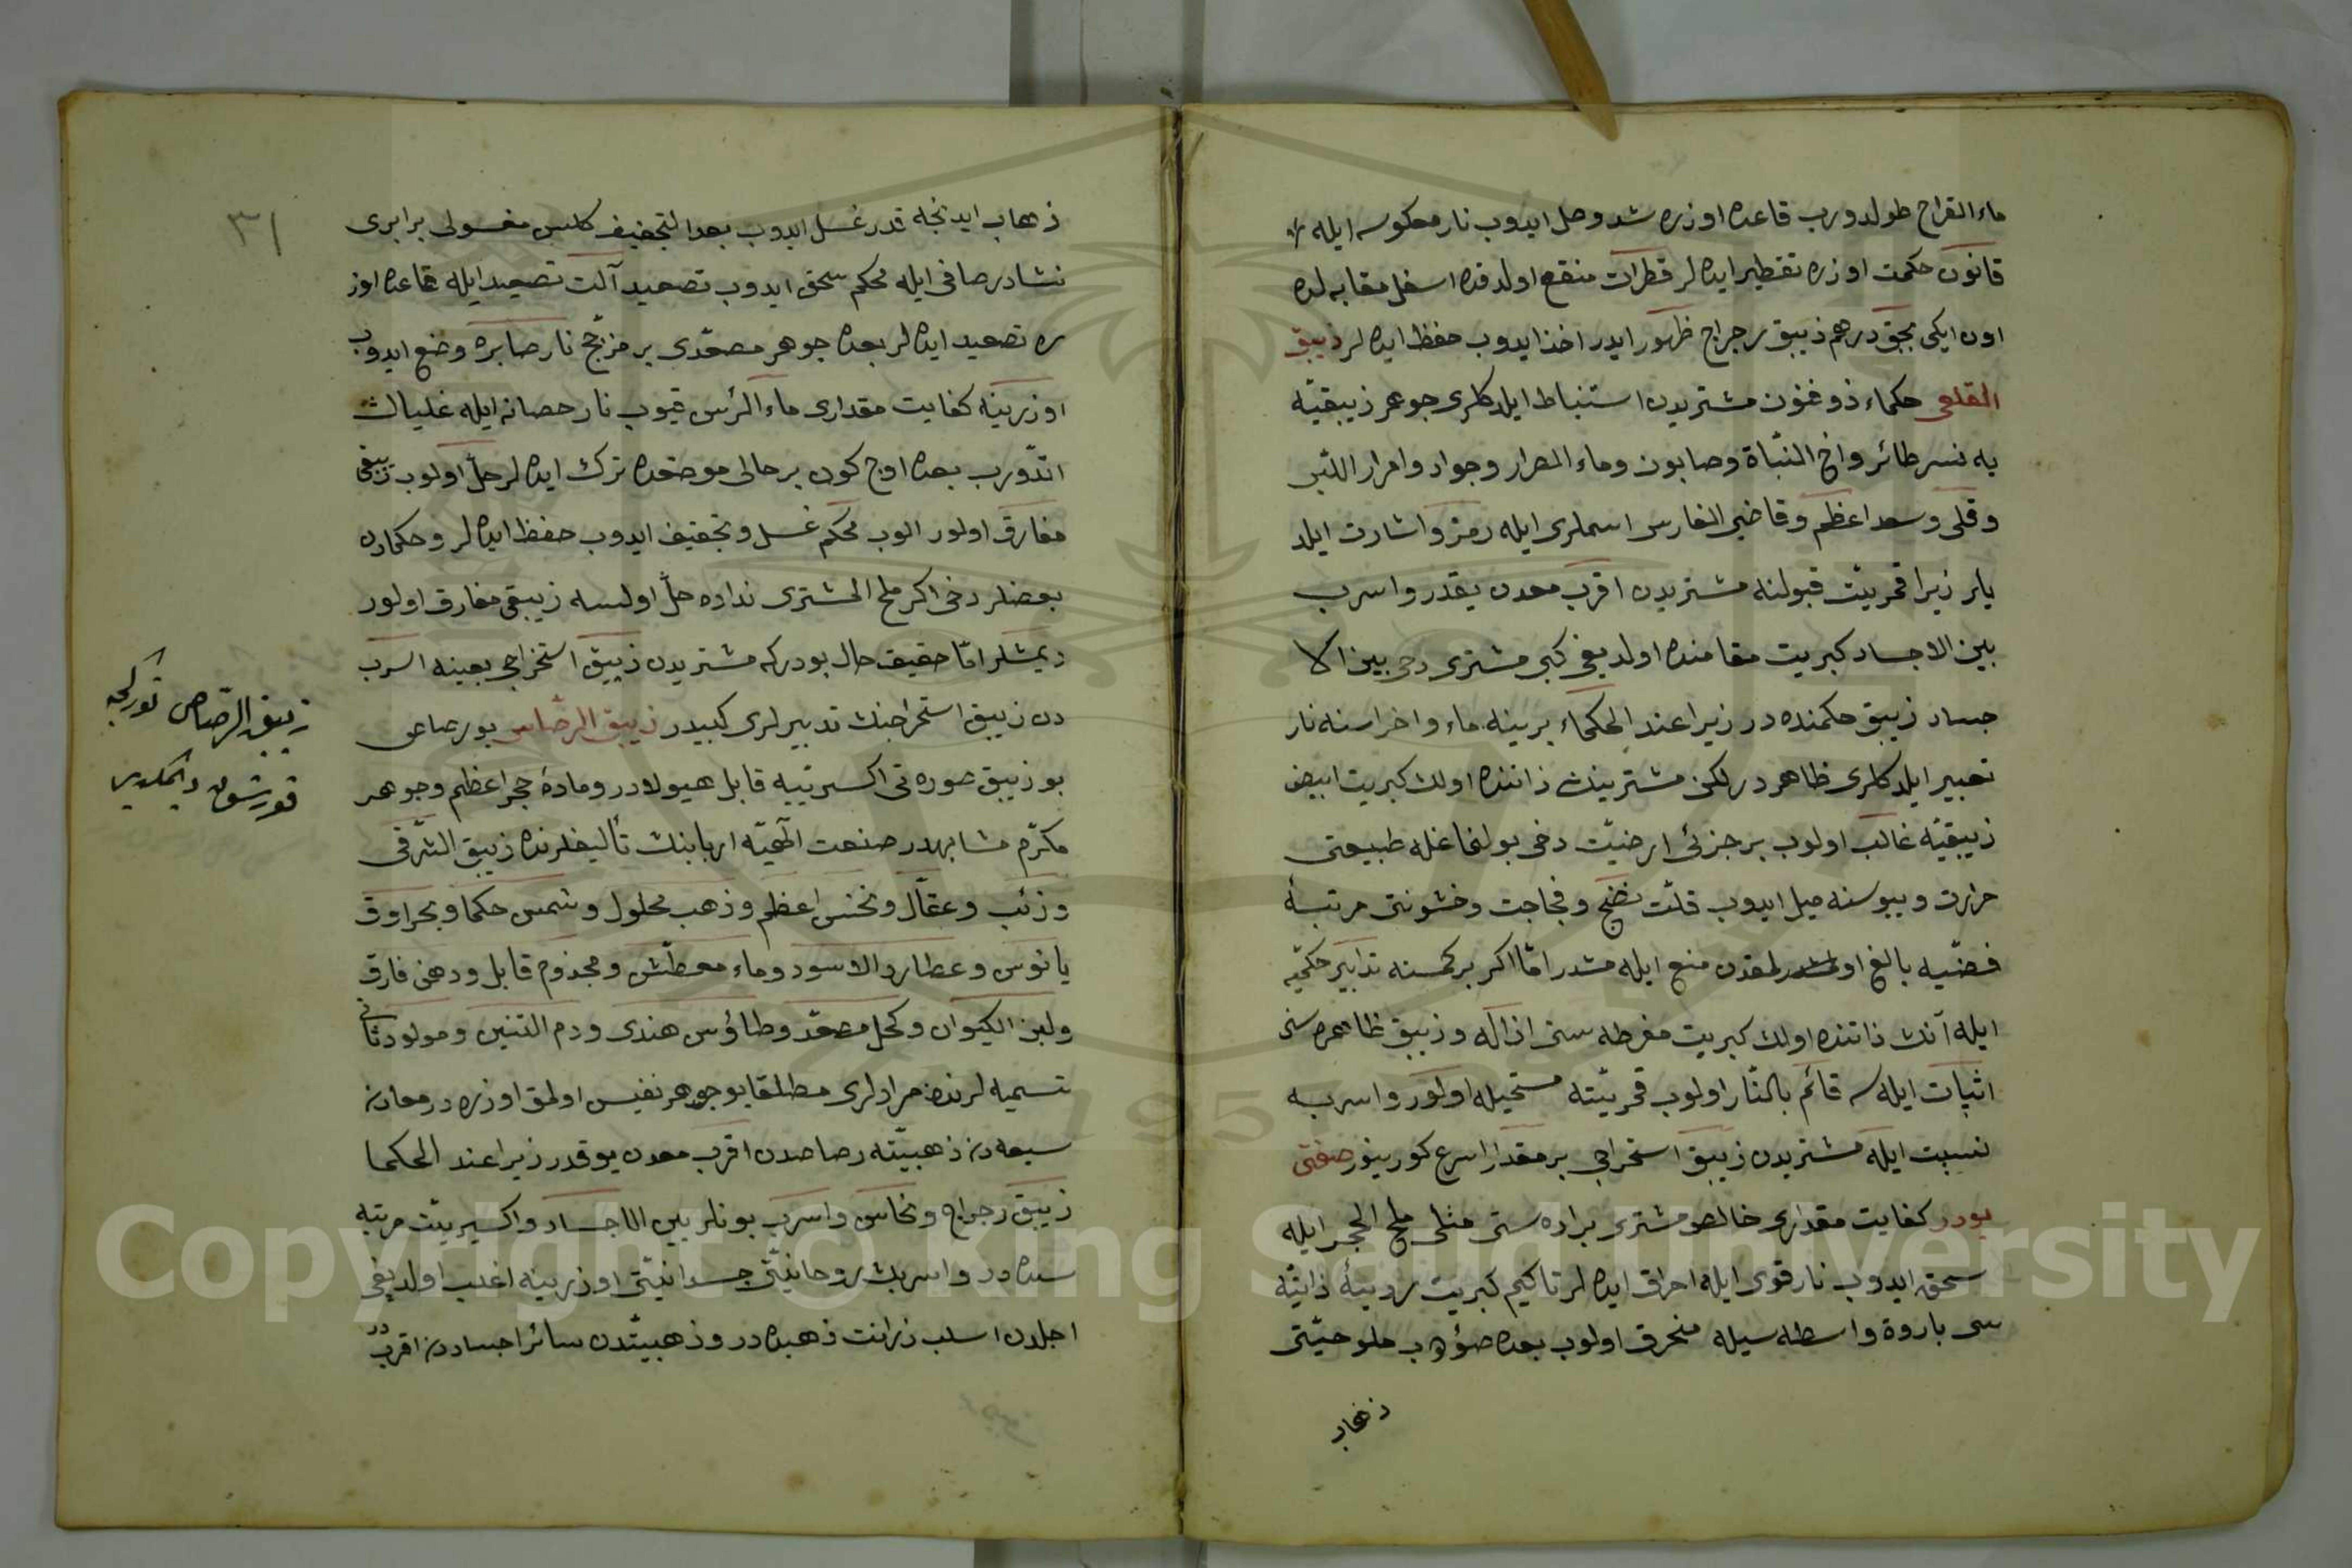 ماء القراح طولدورب قاعده اوزره شد وصل ايدوب نار معكوسه ايله
قانون حكمت اوزره تقطير ايده لر قطرات منقع اولدقده اسفل مقابه لده
اون ايكى بچق درهم زيبق رجراج ظهور ايدر اخذ ايدوب حفظ ايده لر زيبق
القلعى حكماء ذو فنون مشتريدن استنباط ايلدكلرى جوهر زيبقيّه
يه نسر طائر واخ النبّاة وصابون وماء المرار وجواد وامرار اللبن
وقلى وسعد اعظم وقاضى الفارس اسملرى ايله رمز واشارت ايلد
يلر زيرا قمريّت قبولنه مشتريدن اقرب معدن يقدر واسرب
بين الاجساد كبريت مقامنده اولديغى كبى مشترى دخى بين الا
جساد زيبق حكمنده در زيرا عند الحكماء برينه ماء واخراسنه نار
تعبير ايلدكلرى ظاهر در لكن مشترينك ذاتنده اولان كبريت ابيض
زيبقيّه غالب اولوب بر جزئى ارضيّت دخى بولنماغله طبيعتى
حرارت ويبوسته ميل ايدوب قلّت نضج وفجاجت وخشونتى مرتبهٔ
فضّيه بالغ اولمقدن منع ايله مشدر امّا اكر بر كمسنه تدابير حكميّه
ايله آنك ذاتنده اولان كبريت مفرطه سنى ازاله وزيبق ظاهره سنى
اثبات ايله سه قائم بالنّار اولوب قمريّته مستحيله اولور واسربه
نسبت ايله مشتريدن زيبق استخراجى بر مقدار اسرع كورينور صفتى
بودر كفايت مقدارى خالص مشترى براده ستى مثلى ملح الحجر ايله
سحق ايدوب نار قوى ايله احراق ايده لر تاكيم كبريت رديّهٔ ذاتيّه
سى باروة واسطه سيله منحرق اولوب بعده صؤيوب ملوحيّتى
ذهاب
٣١
ذهاب ايدنجه قدر غسل ايدوب بعد التجفيف كلس مغسولى برابرى
نشادر صافى ايله محكم سحق ايدوب تصعيد آلت تصعيد ايله قاعده اوز
ره تصعيد ايده لر بعده جوهر مصعّدى بر مزجّج نار صابره وضع ايدوب
اوزرينه كفايت مقدارى ماء الرأس قيوب نار حصانه ايله غليان
اتدّورب بعده اوچ كون بر حالى موضعده ترك ايده لر حلّ اولوب زيبقى
مفارق اولور الوب محكم غسل وتجفيف ايدوب حفظ ايده لر وحكمادن
بعضلر دخى اكر ملح المشترى نداده حلّ اولسه زيبقى مفارق اولور
ديمشلر امّا حقيقت حال بودركه مشتريدن زيبق استخراجى بعينه اسرب
دن زيبق استخراجنك تدبيرلرى كبيدر زيبق الرصّاص بو رصاص
بو زيبق صوره تى اكسيريّيه قابل هيولادر ومادهٔ حجر اعظم وجوهر
مكرّم مشابهدر صنعت الٓهيّه اربابنك تأليفلرنده زيبق الشّرقى
وزئب وعقّال ونحس اعظم وذهب محلول وشمس حكما وبحر اوق
يانوس وعطارد الاسود وماء معطّش ومجذوم قابل ودهن فارق
ولبن الكيوان وكحل مصعّد وطاؤس هندى ودم التنين ومولود ثانى
تسميه لرنده مرادلرى مطلقا بو جوهر نفيس اولمق اوزره در معادن
سبعه دن ذهبيّته رصاصدن اقرب معدن يوقدر زيرا عند الحكما
زيبق رجراج ونحاس واسرب بونلر بين الاجساد واكسيريّت مرتبه
سنده در واسربك روحانيّتى جسدانيّتى اوزرينه اغلب اولديغى
اجلدن اسلب زرانت ذهبده در وذهبيّتدن سائر اجسادن اقربدر
زيبق الرّصاص توركجه
قورشون ديمكدير
Copyright © King Saud University
1957